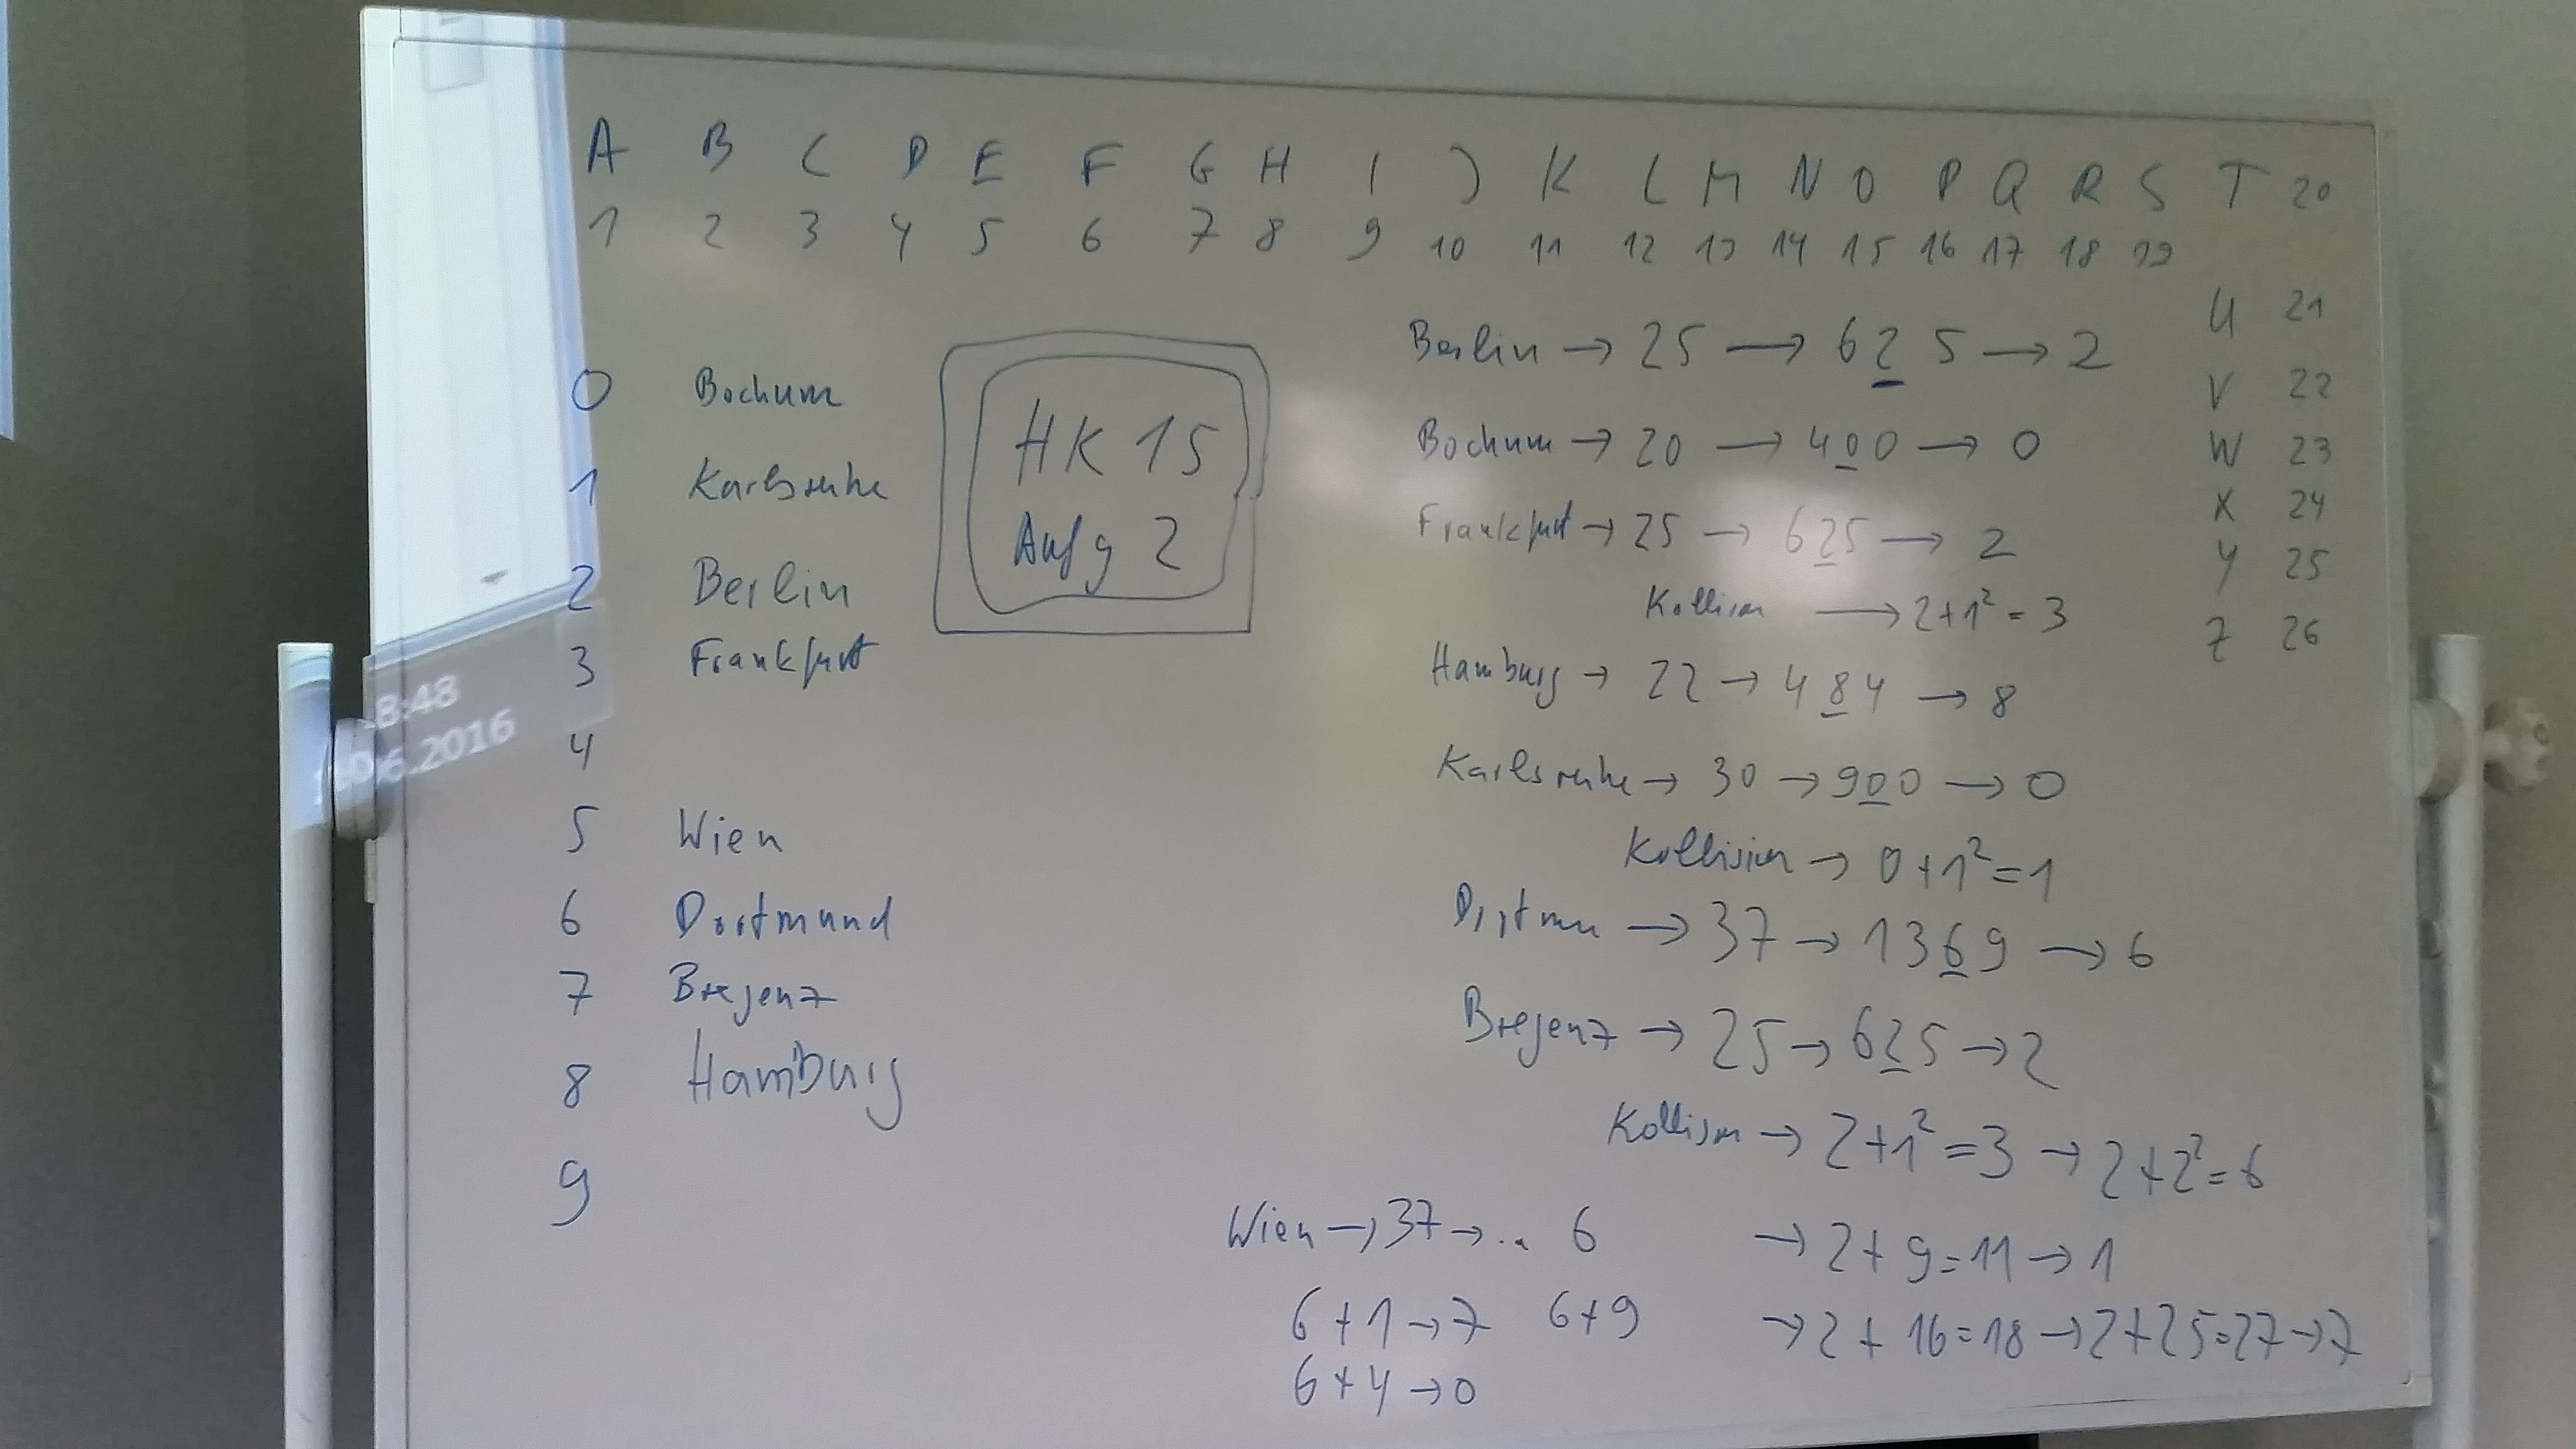 A B C D E F G H I J K L M N O P Q R S T 20
1 2 3 4 5 6 7 8 9 10 11 12 13 14 15 16 17 18 19
U 21
V 22
W 23
X 24
Y 25
Z 26
0 Bochum
1 Karlsruhe
2 Berlin
3 Frankfurt
4
5 Wien
6 Dortmund
7 Bregenz
8 Hamburg
9
HK 15
Aufg 2
8:48
06.2016
Berlin → 25 → 625 → 2
Bochum → 20 → 400 → 0
Frankfurt → 25 → 625 → 2
Kollision → 2+1² = 3
Hamburg → 22 → 484 → 8
Karlsruhe → 30 → 900 → 0
Kollision → 0+1² = 1
Dortmu → 37 → 1369 → 6
Bregenz → 25 → 625 → 2
Kollision → 2+1² = 3 → 2+2² = 6
→ 2+9 = 11 → 1
→ 2+16 = 18 → 2+25 = 27 → 7
Wien → 37 → .. 6
6+1 → 7 6+9
6+4 → 0